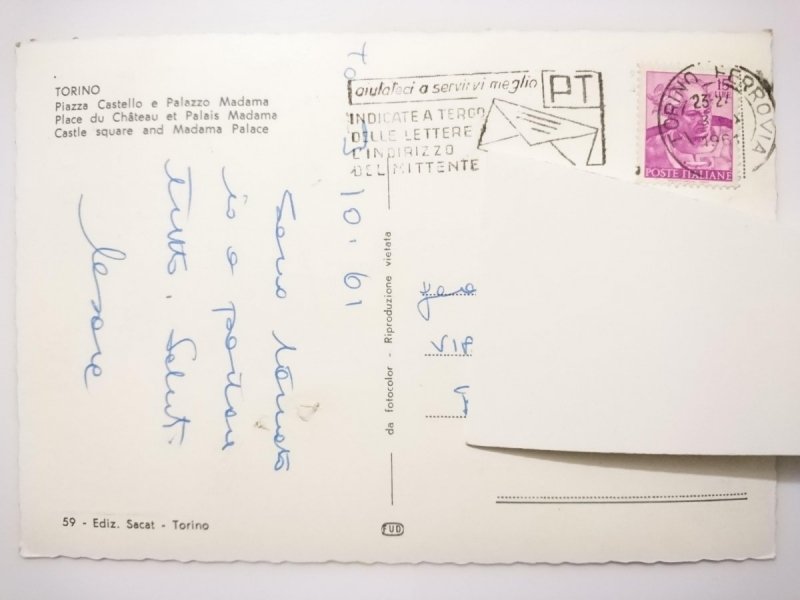 TORINO
Piazza Castello e Palazzo Madama
Place du Château et Palais Madama
Castle square and Madama Palace
aiutateci a servirvi meglio
PT
INDICATE A TERGO
DELLE LETTERE
L'INDIRIZZO
DEL MITTENTE
TORINO FERROVIA
15
23-2
196
POSTE ITALIANE
To 3 10. 61
Sono tornato
io a portare
tutto. Saluti
Cesare
da fotocolor - Riproduzione vietata
VIA
59 - Ediz. Sacat - Torino
FUD